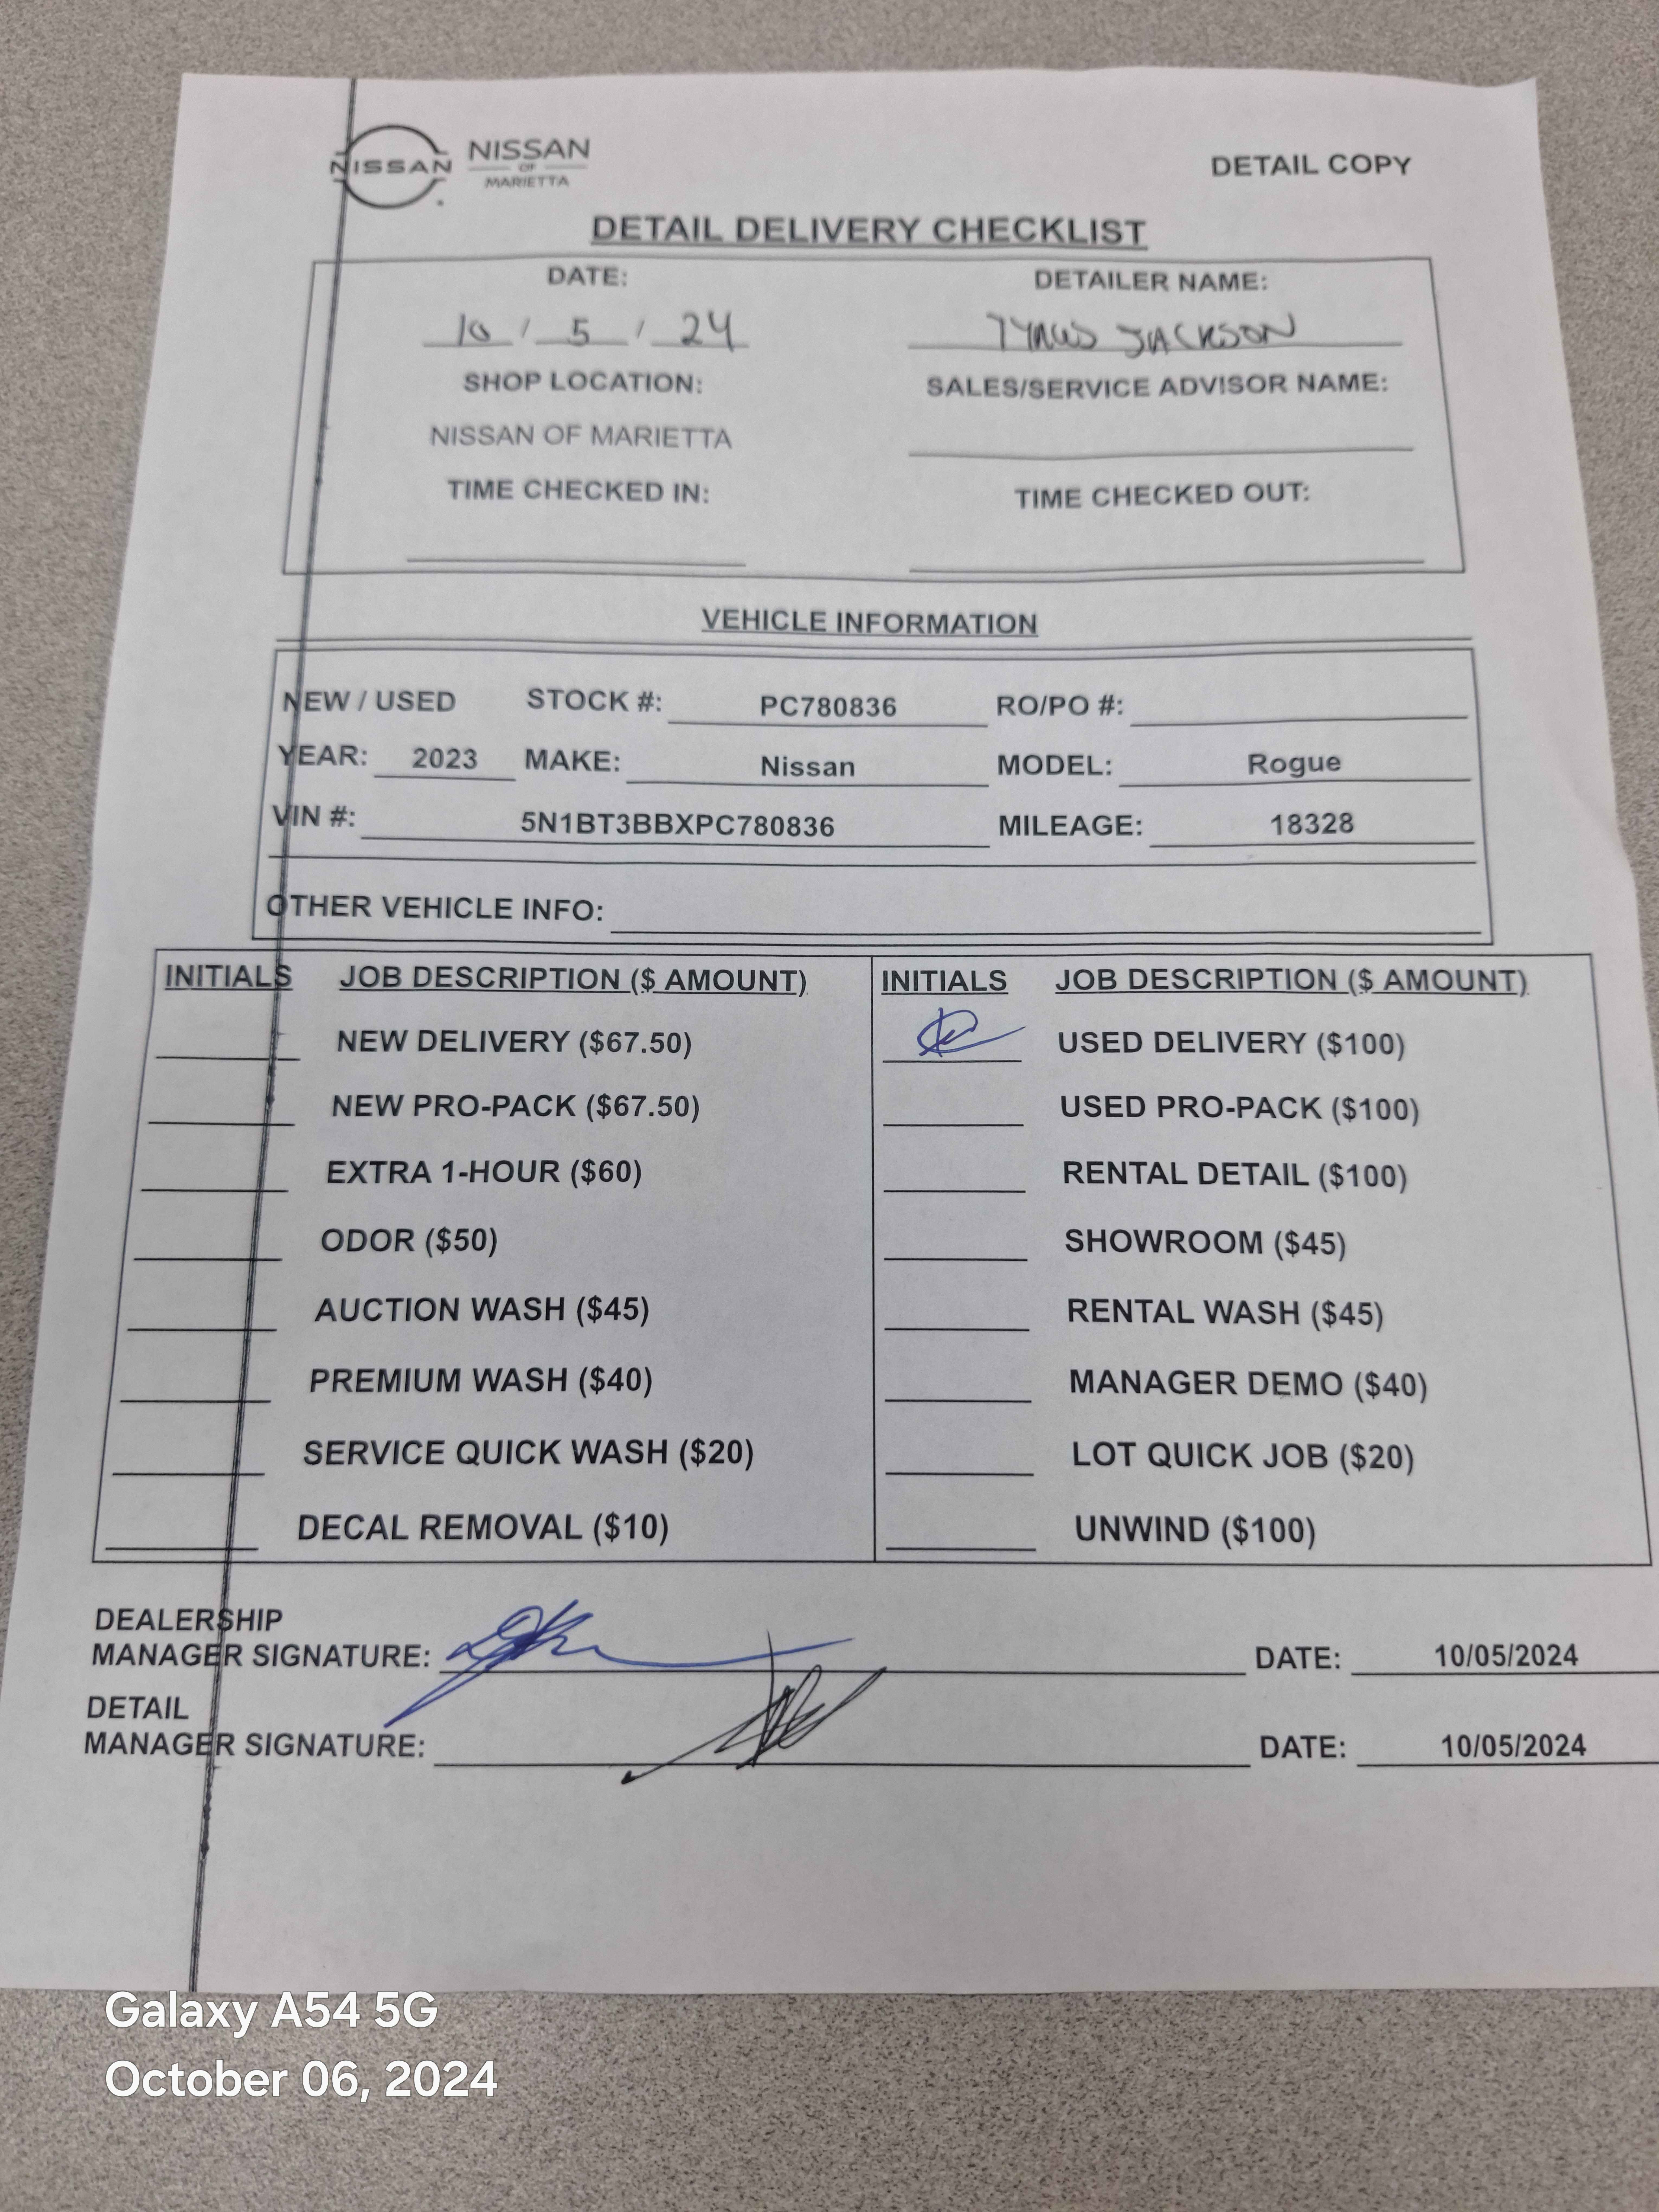 NISSAN NISSAN OF MARIETTA DETAIL COPY
DETAIL DELIVERY CHECKLIST
DATE: DETAILER NAME:
10 / 5 / 24 JACKSON
SHOP LOCATION: SALES/SERVICE ADVISOR NAME:
NISSAN OF MARIETTA
TIME CHECKED IN: TIME CHECKED OUT:
VEHICLE INFORMATION
NEW / USED STOCK #: PC780836 RO/PO #:
YEAR: 2023 MAKE: Nissan MODEL: Rogue
VIN #: 5N1BT3BBXPC780836 MILEAGE: 18328
OTHER VEHICLE INFO:
INITIALS JOB DESCRIPTION ($ AMOUNT) INITIALS JOB DESCRIPTION ($ AMOUNT)
NEW DELIVERY ($67.50) USED DELIVERY ($100)
NEW PRO-PACK ($67.50) USED PRO-PACK ($100)
EXTRA 1-HOUR ($60) RENTAL DETAIL ($100)
ODOR ($50) SHOWROOM ($45)
AUCTION WASH ($45) RENTAL WASH ($45)
PREMIUM WASH ($40) MANAGER DEMO ($40)
SERVICE QUICK WASH ($20) LOT QUICK JOB ($20)
DECAL REMOVAL ($10) UNWIND ($100)
DEALERSHIP
MANAGER SIGNATURE: DATE: 10/05/2024
DETAIL
MANAGER SIGNATURE: DATE: 10/05/2024
Galaxy A54 5G
October 06, 2024